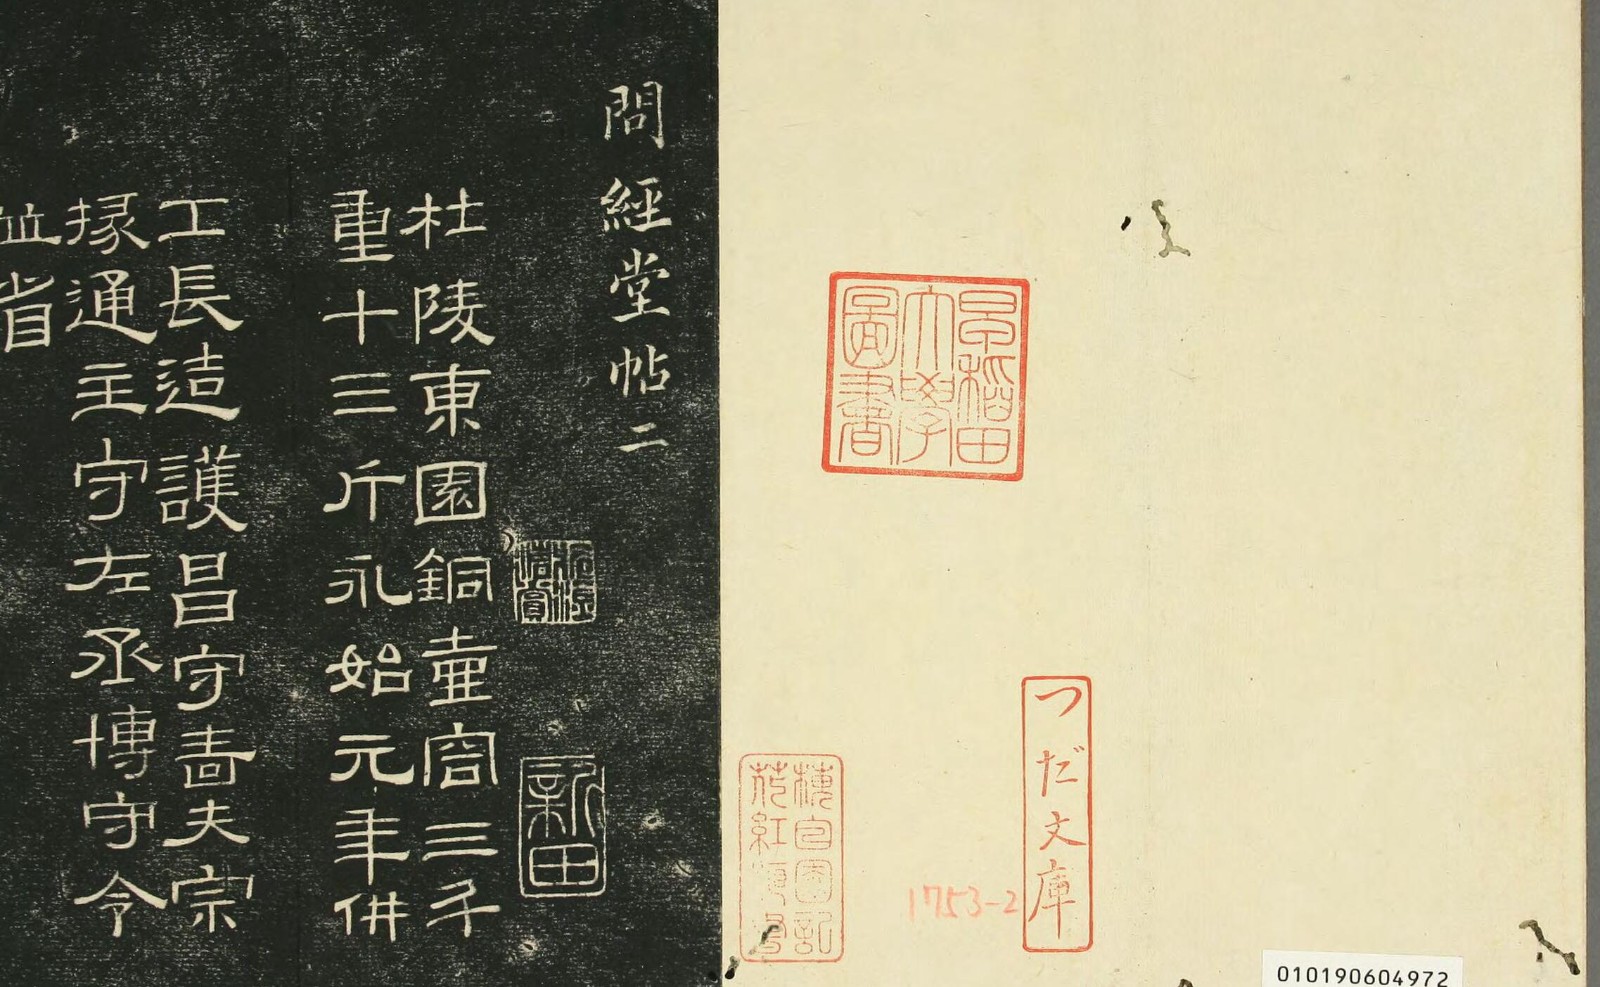 早稻田
大學
圖書
つだ文庫
1753-2
010190604972
問經堂帖二
新田
杜陵東園銅壺容三斗
重十三斤永始元年供
工長造護昌守嗇夫宗
掾通主守左丞博守令
並省